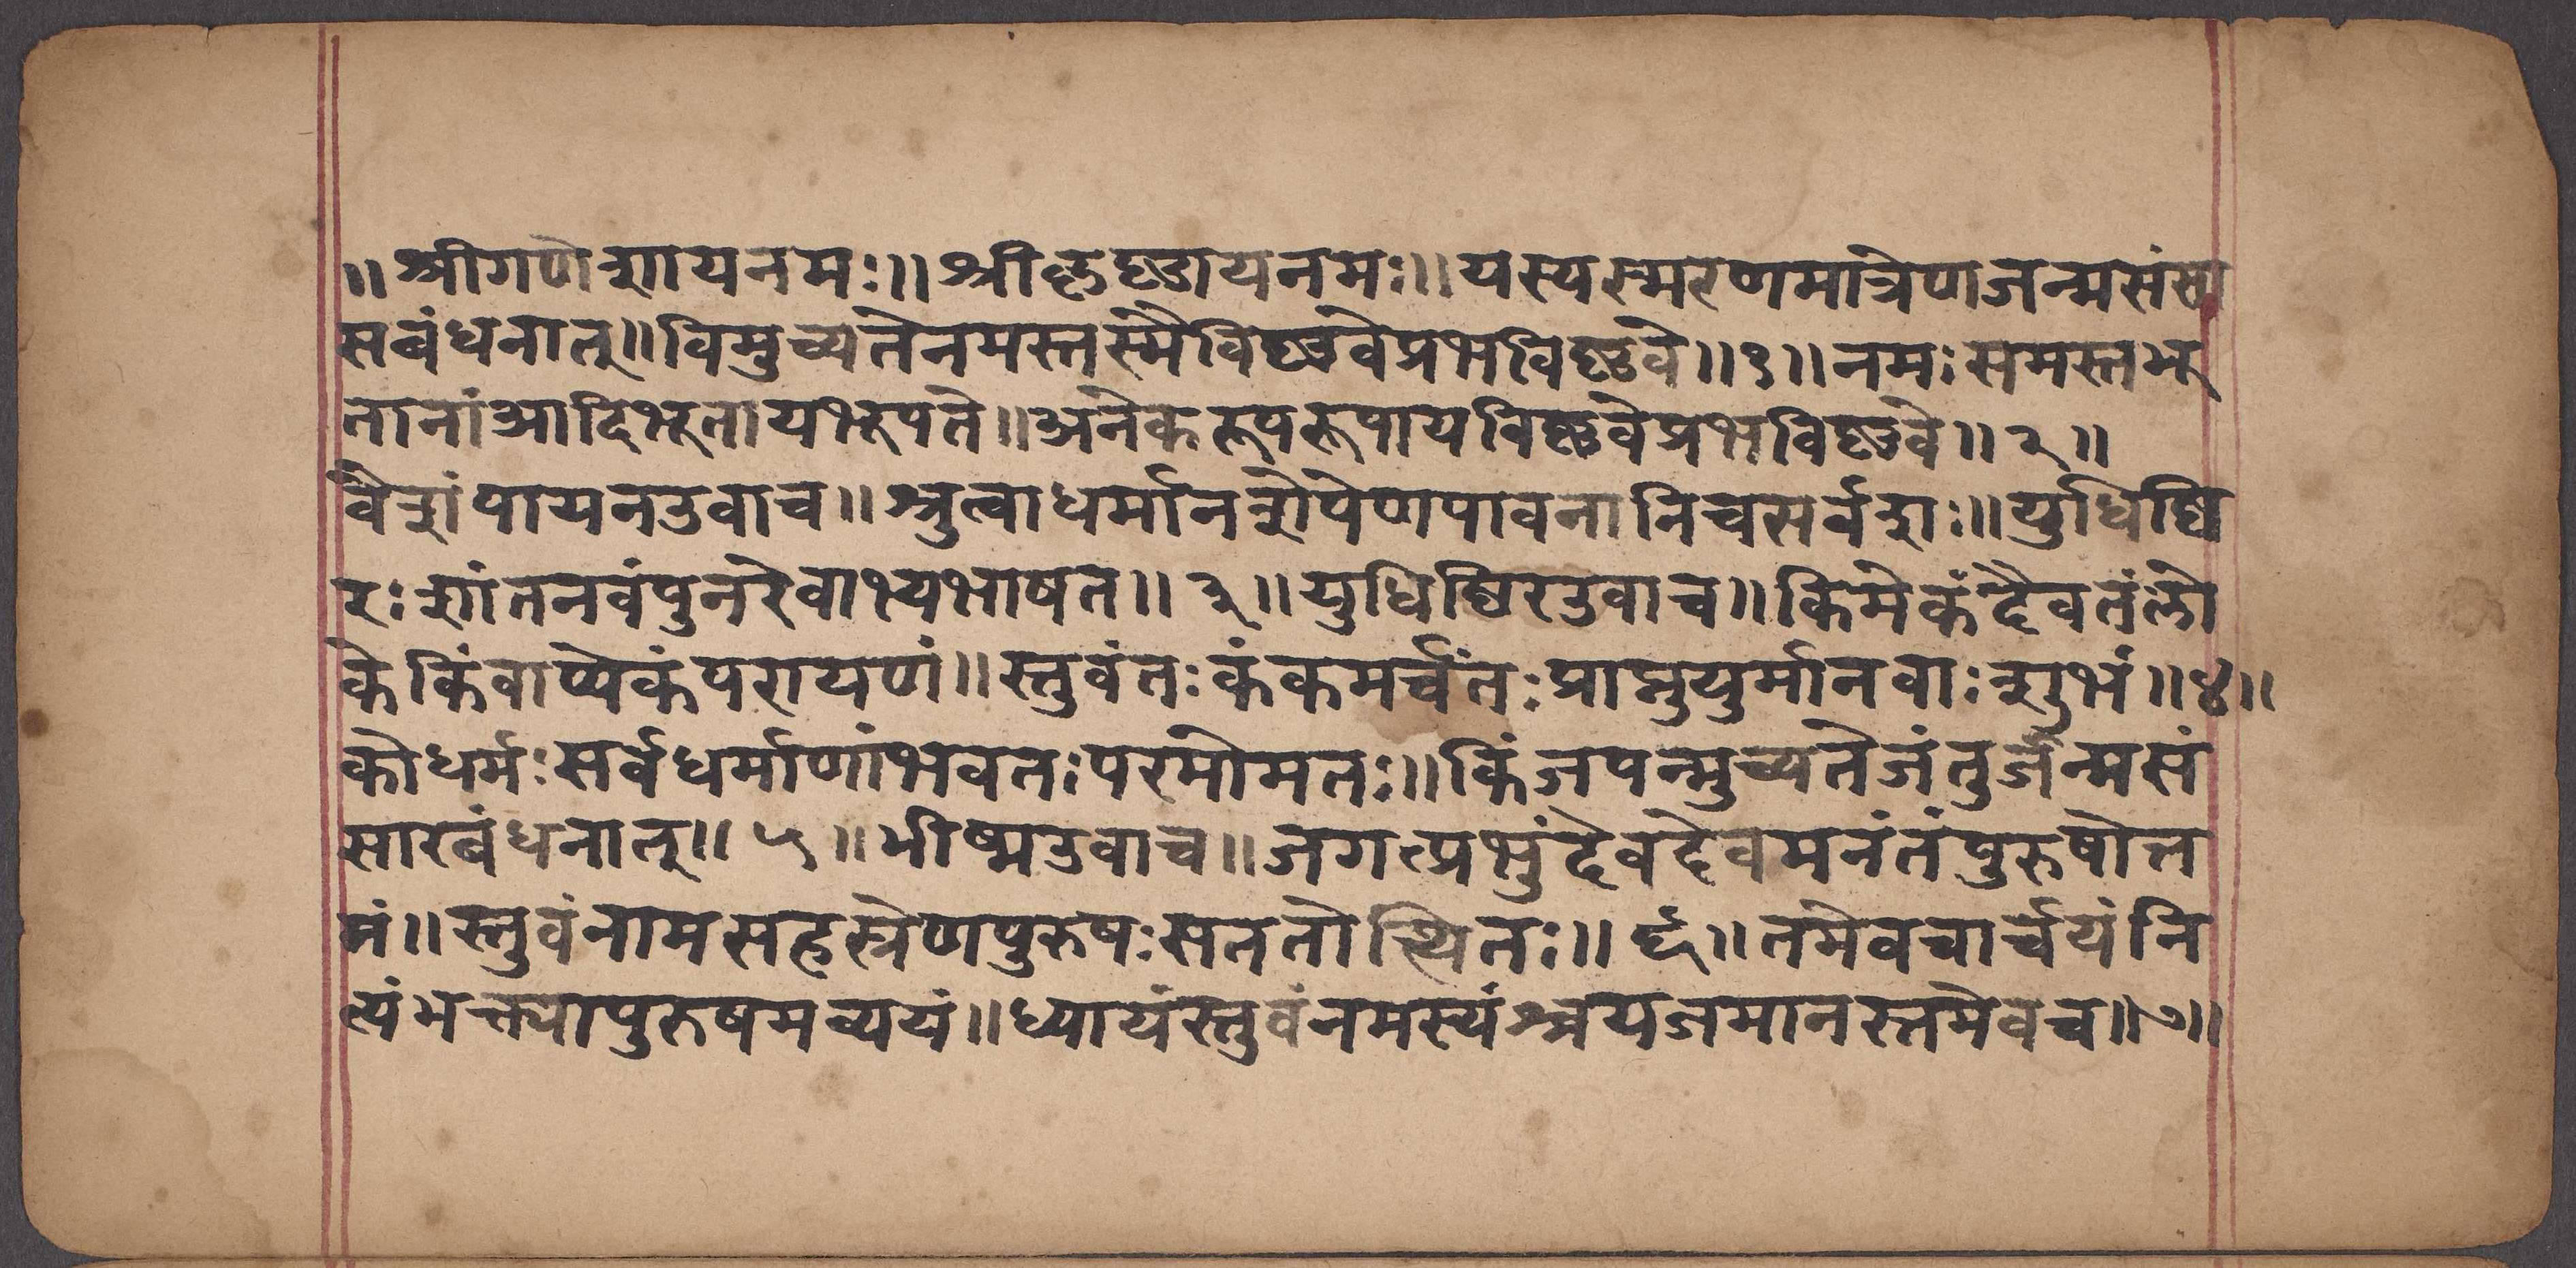 ॥श्रीगणेशायनमः॥श्रीकृष्णायनमः॥यस्यस्मरणमात्रेणजन्मसंसा
सबंधनात्॥विमुच्यतेनमस्तस्मैविष्णवेप्रभविष्णवे॥१॥नमःसमस्तभू
तानांआदिभूतायभूपते॥अनेकरूपरूपायविष्णवेप्रभविष्णवे॥२॥
वैशंपायनउवाच॥श्रुत्वाधर्मानशेषेणपावनानिचसर्वशः॥युधिष्ठि
रःशांतनवंपुनरेवाभ्यभाषत॥३॥युधिष्ठिरउवाच॥किमेकंदैवतंलो
केकिंवाप्येकंपरायणं॥स्तुवंतःकंकमर्चंतःप्राप्नुयुर्मानवाःशुभं॥४॥
कोधर्मःसर्वधर्माणांभवतःपरमोमतः॥किंजपन्मुच्यतेजंतुर्जन्मसं
सारबंधनात्॥५॥भीष्मउवाच॥जगत्प्रभुंदेवदेवमनंतंपुरुषोत्त
मं॥स्तुवंनामसहस्रेणपुरुषःसततोत्थितः॥६॥तमेवचार्चयंनि
त्यंभक्त्यापुरुषमव्ययं॥ध्यायंस्तुवंनमस्यंश्चयजमानस्तमेवच॥७॥